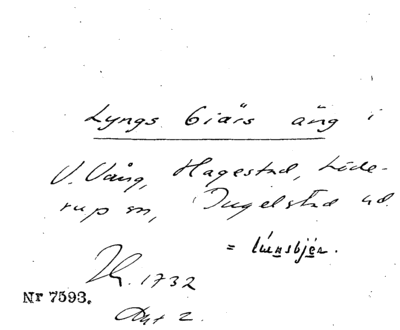 Lyngs Giärs äng i
V. Vång, Hagestad, Löde-
rup sn, Ingelstad hd.
= lúnsbjér.
1732
Nr 7593.
Akt 2.